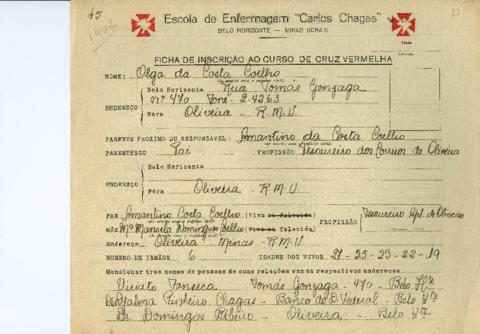 45
1946
Escola de Enfermagem "Carlos Chagas"
BELO HORIZONTE — MINAS GERAIS
FICHA DE INSCRIÇÃO AO CURSO DE CRUZ VERMELHA
NOME: Olga da Costa Coelho
Belo Horizonte Rua Tomás Gonzaga
nº 470 Fone - 2-4263
ENDEREÇO
Fóra Oliveira - R.M.V.
PARENTE PROXIMO OU RESPONSAVEL: Amantino da Costa Coelho
PARENTESCO Pai PROFISSÃO Tesoureiro dos Correios de Oliveira
Belo Horizonte
ENDEREÇO
Fóra Oliveira - R.M.V.
PAE Amantino Costa Coelho (Vivo ou falecido) PROFISSÃO Tesoureiro Apt. de Oliveira
MÃE Mª Domingues Coelho (Viva ou falecida)
Endereço Oliveira Minas - R.M.V.
NUMERO DE IRMÃOS 6 IDADES DOS VIVOS 27-25-23-22-19
Mencionar tres nomes de pessoas de suas relações com os respectivos endereços
Viriato Fonseca Tomás Gonzaga - 470 - Belo Hte
Pinheiro Chagas - Banco - Belo Hte
Dr Domingos Ribeiro - Oliveira - Belo Hte